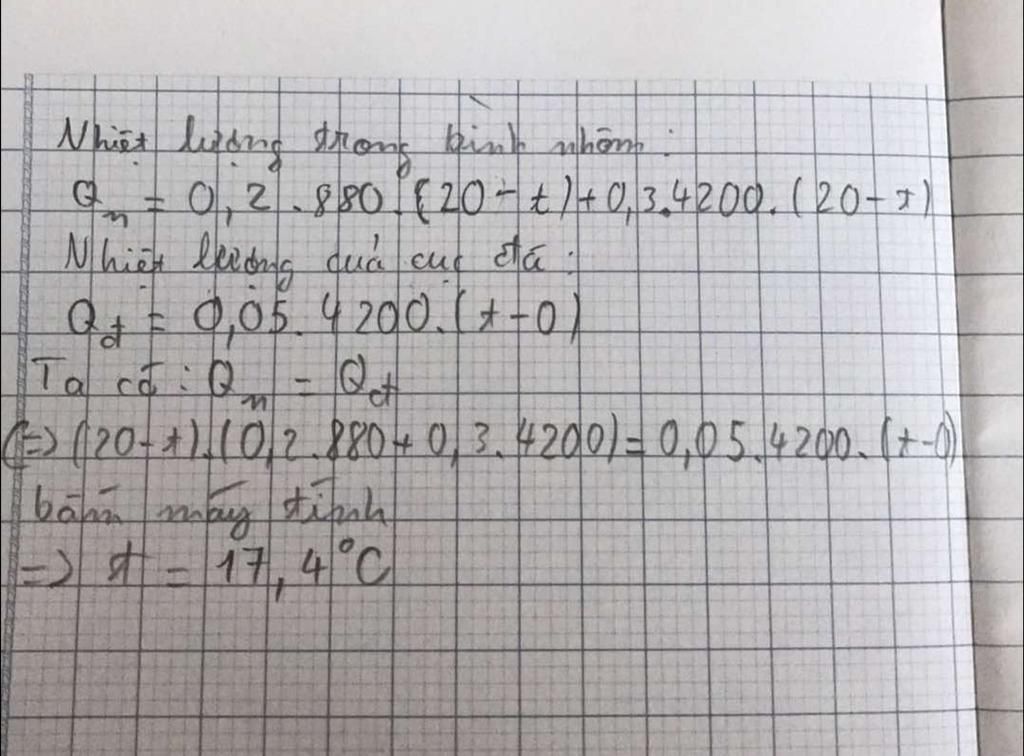 Nhiệt lượng trong bình nhôm:
Qn = 0,2.880.(20-t)+0,3.4200.(20-t)
Nhiệt lượng quả cục đá:
Qđ = 0,05.4200.(t-0)
Ta có: Qn = Qđ
(=> (20-t).(0,2.880+0,3.4200)=0,05.4200.(t-0)
bấm máy tính
=> t = 17,4°C